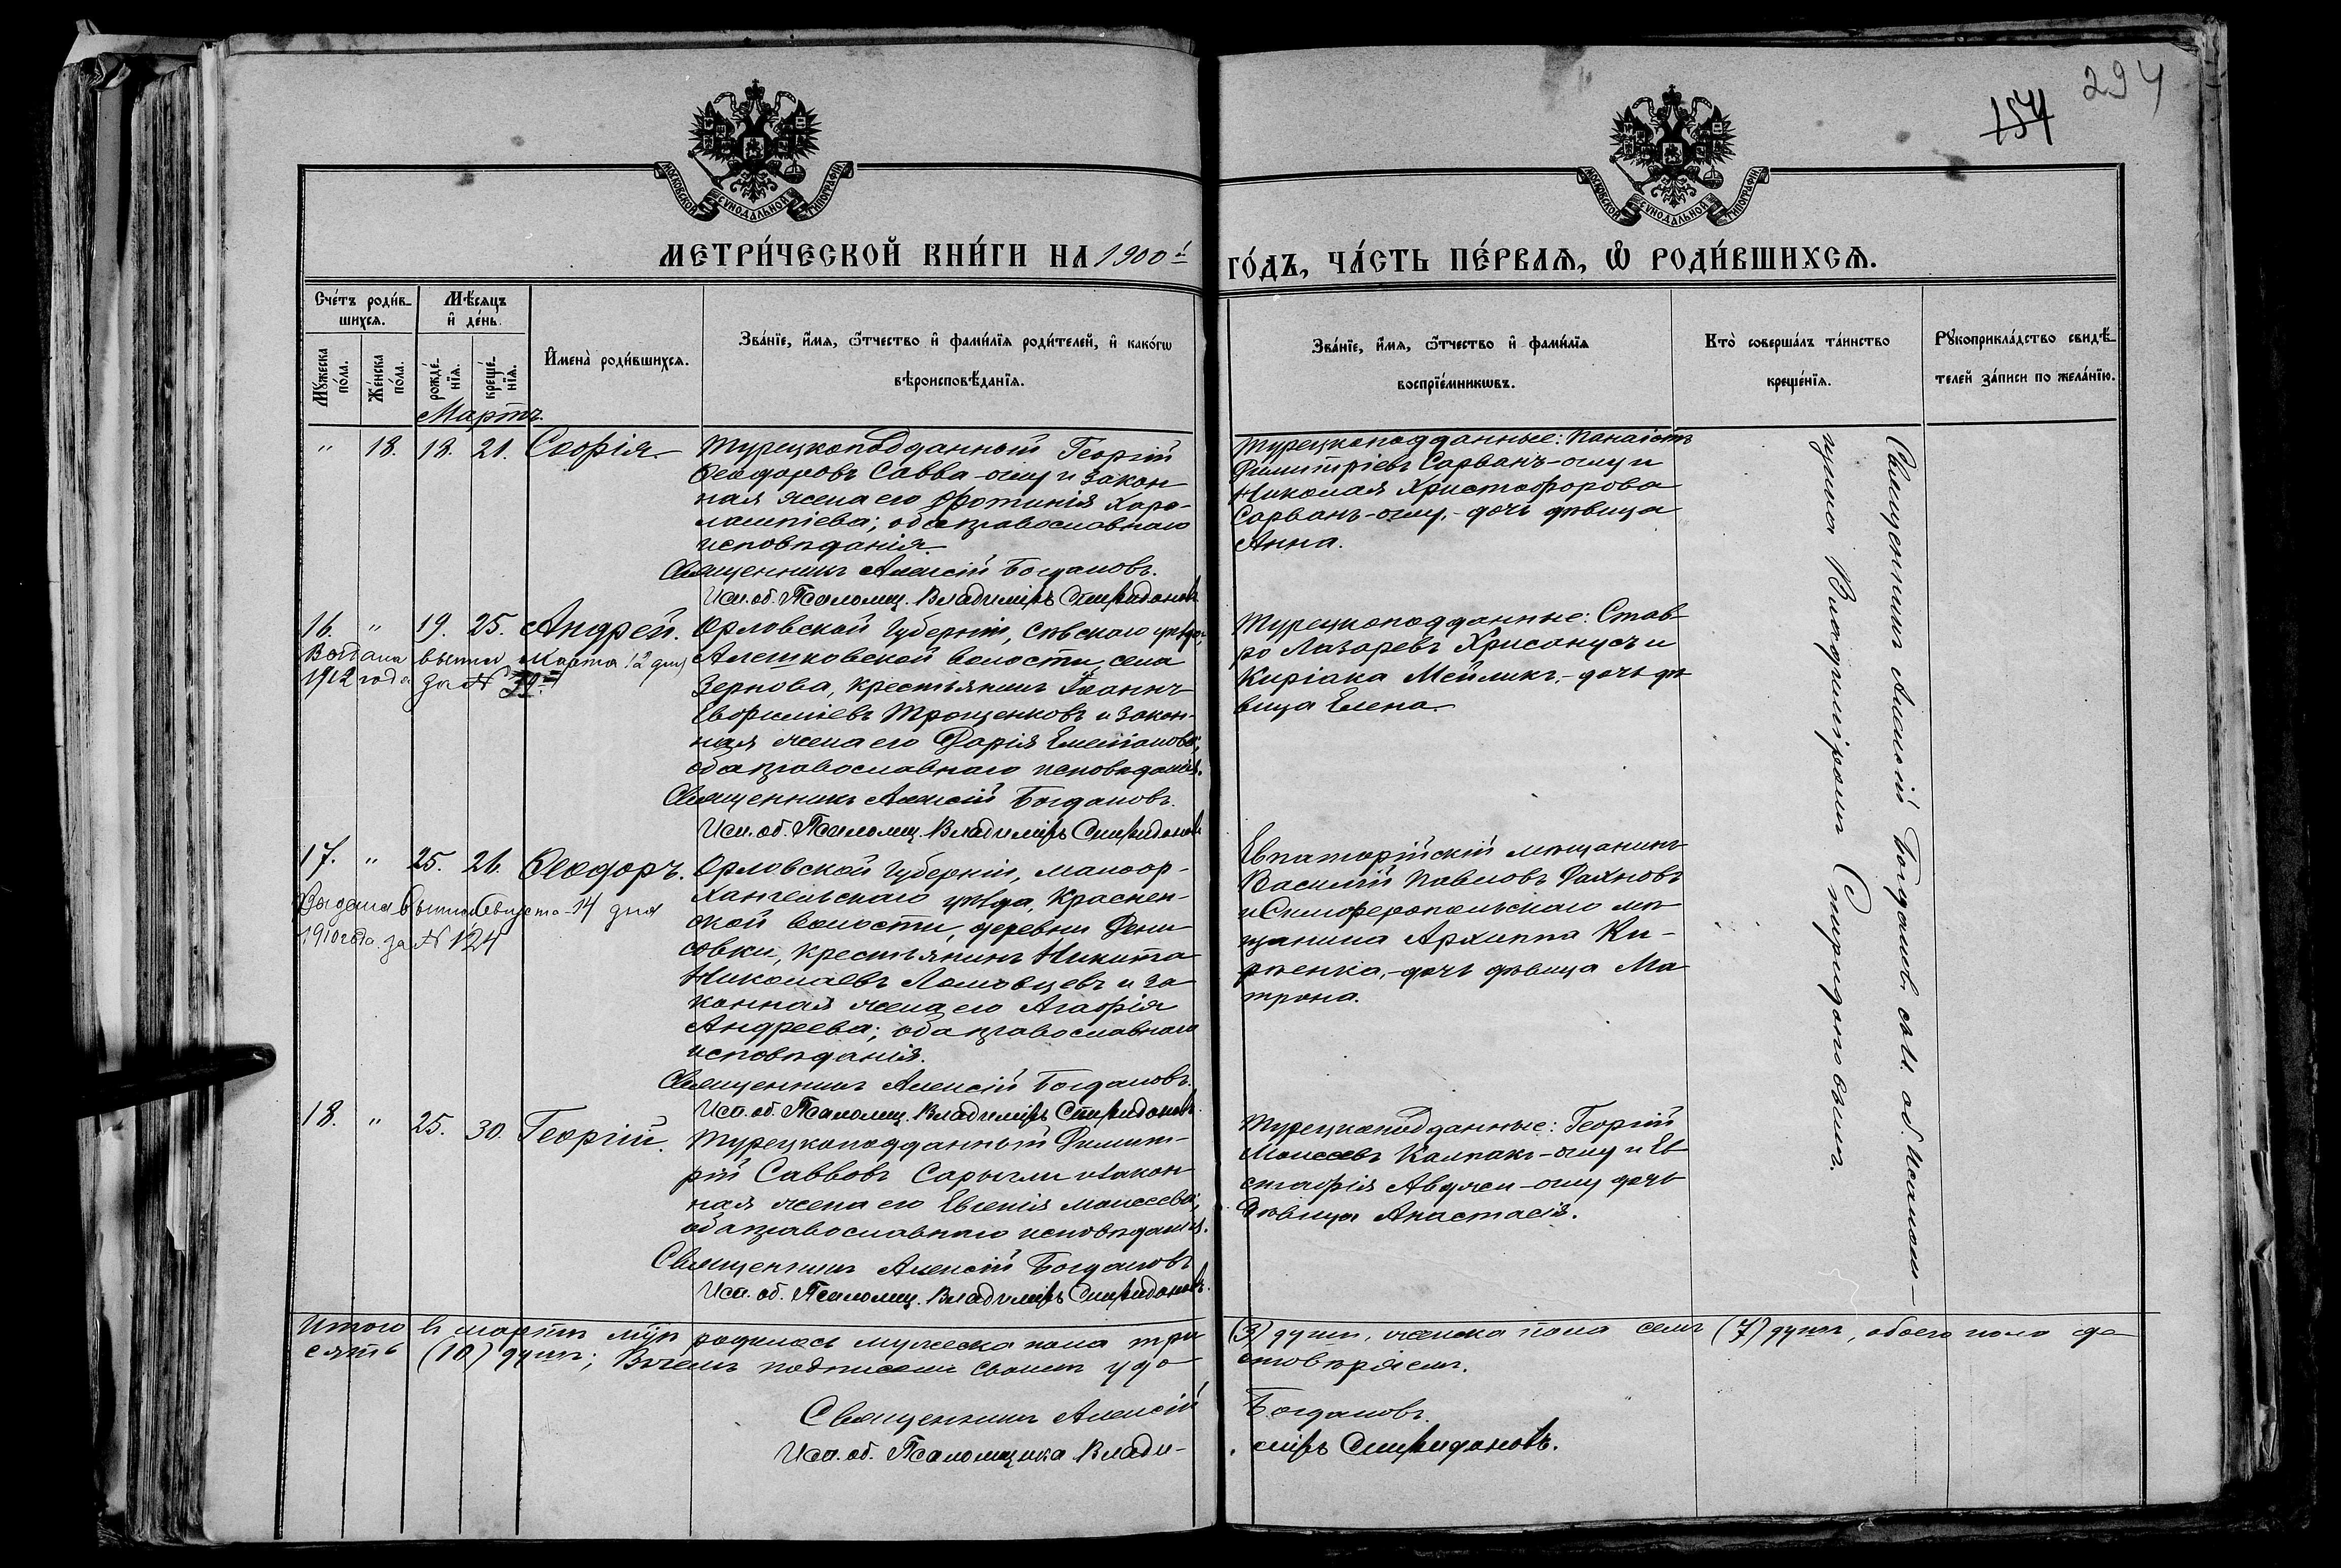 294
154
МОСКОВСКОЙ СѴНОДАЛЬНОЙ ТИПОГРАФІИ
МОСКОВСКОЙ СѴНОДАЛЬНОЙ ТИПОГРАФІИ
МЕТРИ́ЧЕСКОЙ КНИ́ГИ НА 1900й
ГО́ДЪ, ЧА́СТЬ ПЕ́РВАѦ, Ѽ РОДИ́ВШИХСѦ.
Сче́тъ роди́в-
шихсѧ.
Мѣ́сѧцъ
и҆ де́нь.
Мꙋ́жеска
по́ла.
Же́нска
по́ла.
рожде́-
нїѧ.
креще́-
нїѧ.
И҆мена̀ роди́вшихсѧ.
Зва́нїе, и҆́мѧ, ѻ҆́тчество и҆ фами́лїѧ роди́телей, и҆ како́гѡ
вѣроисповѣ́данїѧ.
Зва́нїе, и҆́мѧ, ѻ҆́тчество и҆ фами́лїѧ
воспрїе́мникѡвъ.
Кто̀ соверша́лъ та́инство
креще́нїѧ.
Рꙋкоприкла́дство свидѣ́-
телей за́писи по жела́нїю.
Мартъ.
" 18. 18. 21. Софія
Турецкоподданный Георгій
Ѳеодоровъ Савва-оглу и закон
ная жена его Фотинія Хара-
лампіева; оба православнаго
исповѣданія.
Священникъ Алексій Богдановъ.
Исп. об. Псаломщ. Владиміръ Спиридоновъ
Турецкоподданные: Панаіотъ
Димитріевъ Сарванъ-оглу и
Николая Христофорова
Сарванъ-оглу,- дочь дѣвица
Анна.
16. " 19. 25. Андрей.
Выдана выпись Марта 12 дня
1912 года за №
Орловской Губерніи, Сѣвскаго уѣзда,
Алешковской волости, села
Зернова, крестьянинъ Іоаннъ
Евфиміевъ Трощенковъ и закон-
ная жена его Дарія Емеліанова;
оба православнаго исповѣданія.
Священникъ Алексій Богдановъ.
Исп. об. Псаломщ. Владиміръ Спиридоновъ
Турецкоподданные: Став-
ро Лазаревъ Хрисанусъ и
Киріака Мейликъ,- дочь дѣ
вица Елена
17. " 25. 26. Ѳеодоръ.
Выдана выпись Августа 14 дня
1910 года за № 124
Орловской Губерніи, Малоар-
хангельскаго уѣзда, Краснен-
ской волости, деревни Дени
совки, крестьянинъ Никита
Николаевъ Ломовцевъ и за
конная жена его Агафія
Андреева; оба православнаго
исповѣданія.
Священникъ Алексій Богдановъ.
Исп. об. Псаломщ. Владиміръ Спиридоновъ.
Евпаторійскій мѣщанинъ
Василій Павловъ Дахновъ
и Симферопольскаго мѣ
щанина Архиппа Ки-
рѣенка,- дочь дѣвица Ма
трона.
18. " 25. 30. Георгій.
Турецкоподданный Димит-
рій Саввовъ Сарыгли и закон
ная жена его Евгенія Моисеева;
оба православнаго исповѣданія.
Священникъ Алексій Богдановъ
Исп. об. Псаломщ. Владиміръ Спиридоновъ.
Турецкоподданные: Георгій
Моисеевъ Калпакъ-оглу и Ев
стафія Авджи-оглу дочь
дѣвица Анастасія.
Священникъ Алексій Богдановъ съ и. об. Псаломщи-
щика Владиміромъ Спиридоновымъ.
Итого въ мартѣ м-цѣ родилось мужеска пола три (3) души, женска пола семь (7) душъ, обоего пола де-
сять (10) душъ; Въ чемъ подписомъ своимъ удо стовѣряемъ.
Священникъ Алексій Богдановъ.
Исп. об. Псаломщика Влади- міръ Спиридоновъ.